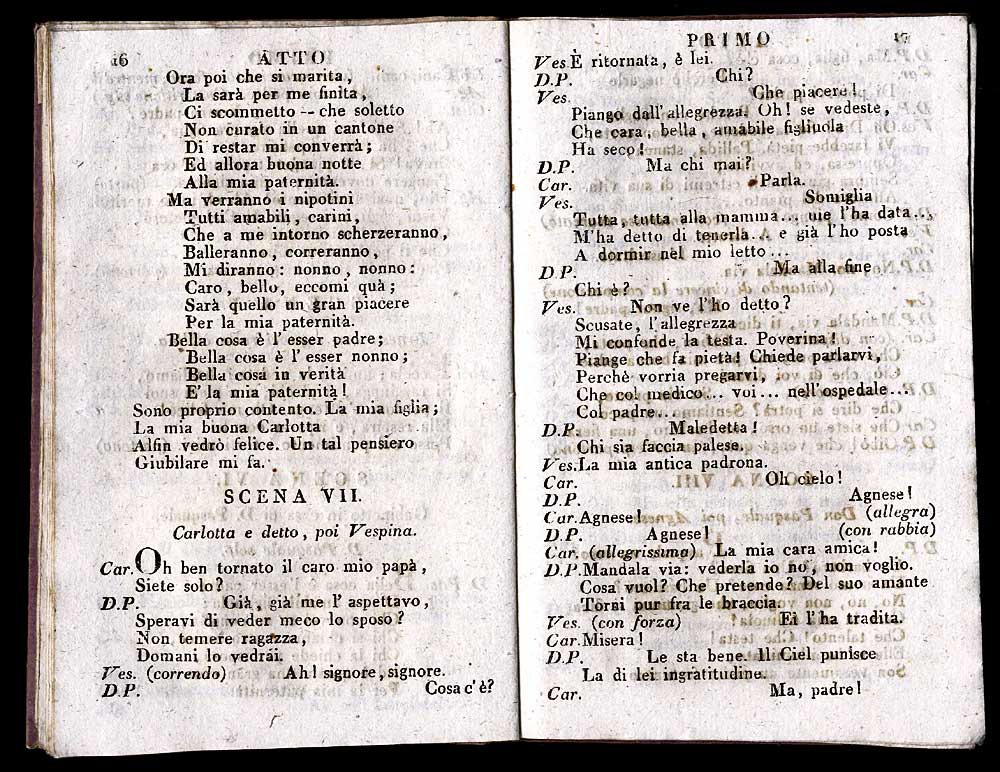 16 ATTO
Ora poi che si marita,
La sarà per me finita,
Ci scommetto -- che soletto
Non curato in un cantone
Di restar mi converrà;
Ed allora buona notte
Alla mia paternità.
Ma verranno i nipotini
Tutti amabili, carini,
Che a me intorno scherzeranno,
Balleranno, correranno,
Mi diranno: nonno, nonno:
Caro, bello, eccomi quà;
Sarà quello un gran piacere
Per la mia paternità.
Bella cosa è l' esser padre;
Bella cosa è l' esser nonno;
Bella cosa in verità
E' la mia paternità!
Sono proprio contento. La mia figlia;
La mia buona Carlotta
Alfin vedrò felice. Un tal pensiero
Giubilare mi fa.
SCENA VII.
Carlotta e detto, poi Vespina.
Car. Oh ben tornato il caro mio papà,
Siete solo?
D.P. Già, già me l' aspettavo,
Speravi di veder meco lo sposo?
Non temere ragazza,
Domani lo vedrai.
Ves. (correndo) Ah! signore, signore.
D.P. Cosa c'è?
PRIMO 17
Ves. È ritornata, è lei.
D.P. Chi?
Ves. Che piacere!
Piango dall'allegrezza. Oh! se vedeste,
Che cara, bella, amabile figliuola
Ha seco!
D.P. Ma chi mai?
Car. Parla.
Ves. Somiglia
Tutta, tutta alla mamma... me l'ha data...
M'ha detto di tenerla... e già l'ho posta
A dormir nel mio letto...
D.P. Ma alla fine
Chi è?
Ves. Non ve l'ho detto?
Scusate, l'allegrezza
Mi confonde la testa. Poverina!
Piange che fa pietà! Chiede parlarvi,
Perchè vorria pregarvi,
Che col medico... voi... nell'ospedale...
Col padre...
D.P. Maledetta!
Chi sia faccia palese.
Ves. La mia antica padrona.
Car. Oh cielo!
D.P. Agnese!
Car. Agnese! (allegra)
D.P. Agnese! (con rabbia)
Car. (allegrissima) La mia cara amica!
D.P. Mandala via: vederla io no, non voglio.
Cosa vuol? Che pretende? Del suo amante
Torni pur fra le braccia.
Ves. (con forza) Ei l'ha tradita.
Car. Misera!
D.P. Le sta bene. Il Ciel punisce
La di lei ingratitudine.
Car. Ma, padre!